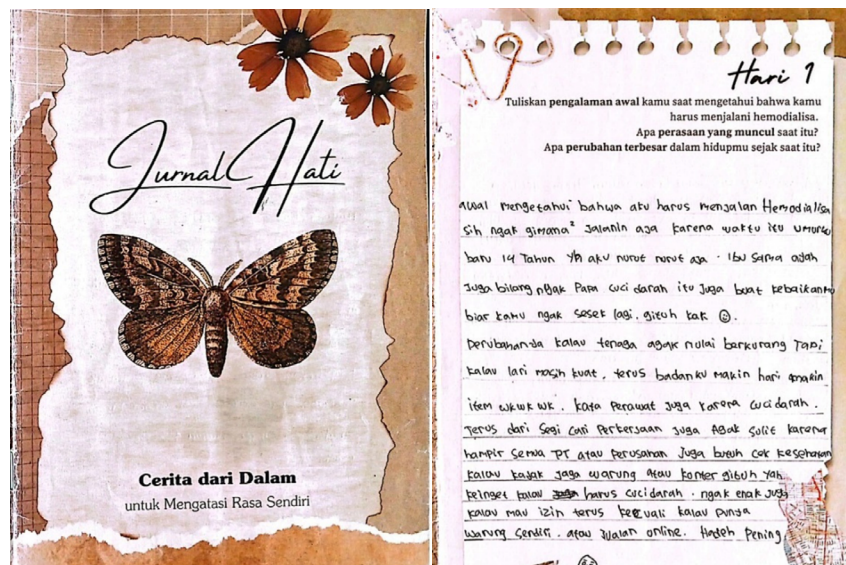 Jurnal Hati
Cerita dari Dalam
untuk Mengatasi Rasa Sendiri
Hari 1
Tuliskan pengalaman awal kamu saat mengetahui bahwa kamu
harus menjalani hemodialisa.
Apa perasaan yang muncul saat itu?
Apa perubahan terbesar dalam hidupmu sejak saat itu?
awal mengetahui bahwa aku harus menjalan Hemodialisa
sih ngak gimana² Jalanin aja karena waktu itu umurku
baru 14 Tahun yh aku nurut nurut aja. Ibu sama ayah
Juga bilang ngak Papa cuci darah itu Juga buat kebaikanmu
biar kamu ngak sesek lagi. gituh kak ☺.
Perubahannya kalau tenaga agak mulai berkurang Tapi
kalau lari masih kuat. terus badanku makin hari makin
item wkwkwk. kata perawat Juga karena cuci darah.
Terus dari segi cari Perkerjaan Juga Agak sulit karena
hampir semua PT atau Perusahan Juga butuh cek kesehatan
kalau kayak Jaga warung atau konter gituh yah
keinget kalau harus cuci darah. ngak enak Juga
kalau mau izin terus kecuali kalau punya
warung sendiri. atau Jualan online. Hadeh Pening